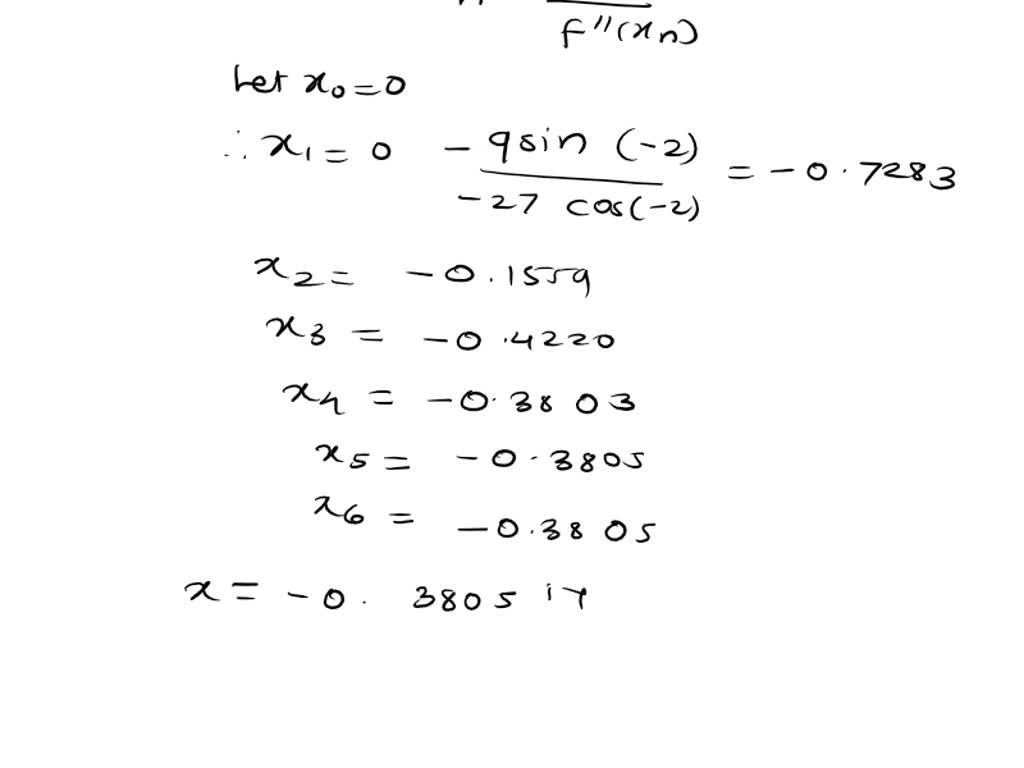 f''(xn)
Let x0 = 0
∴ x1 = 0 - 9sin (-2) / -27 cos(-2) = -0.7283
x2 = -0.1559
x3 = -0.4220
x4 = -0.3803
x5 = -0.3805
x6 = -0.3805
x = -0.3805